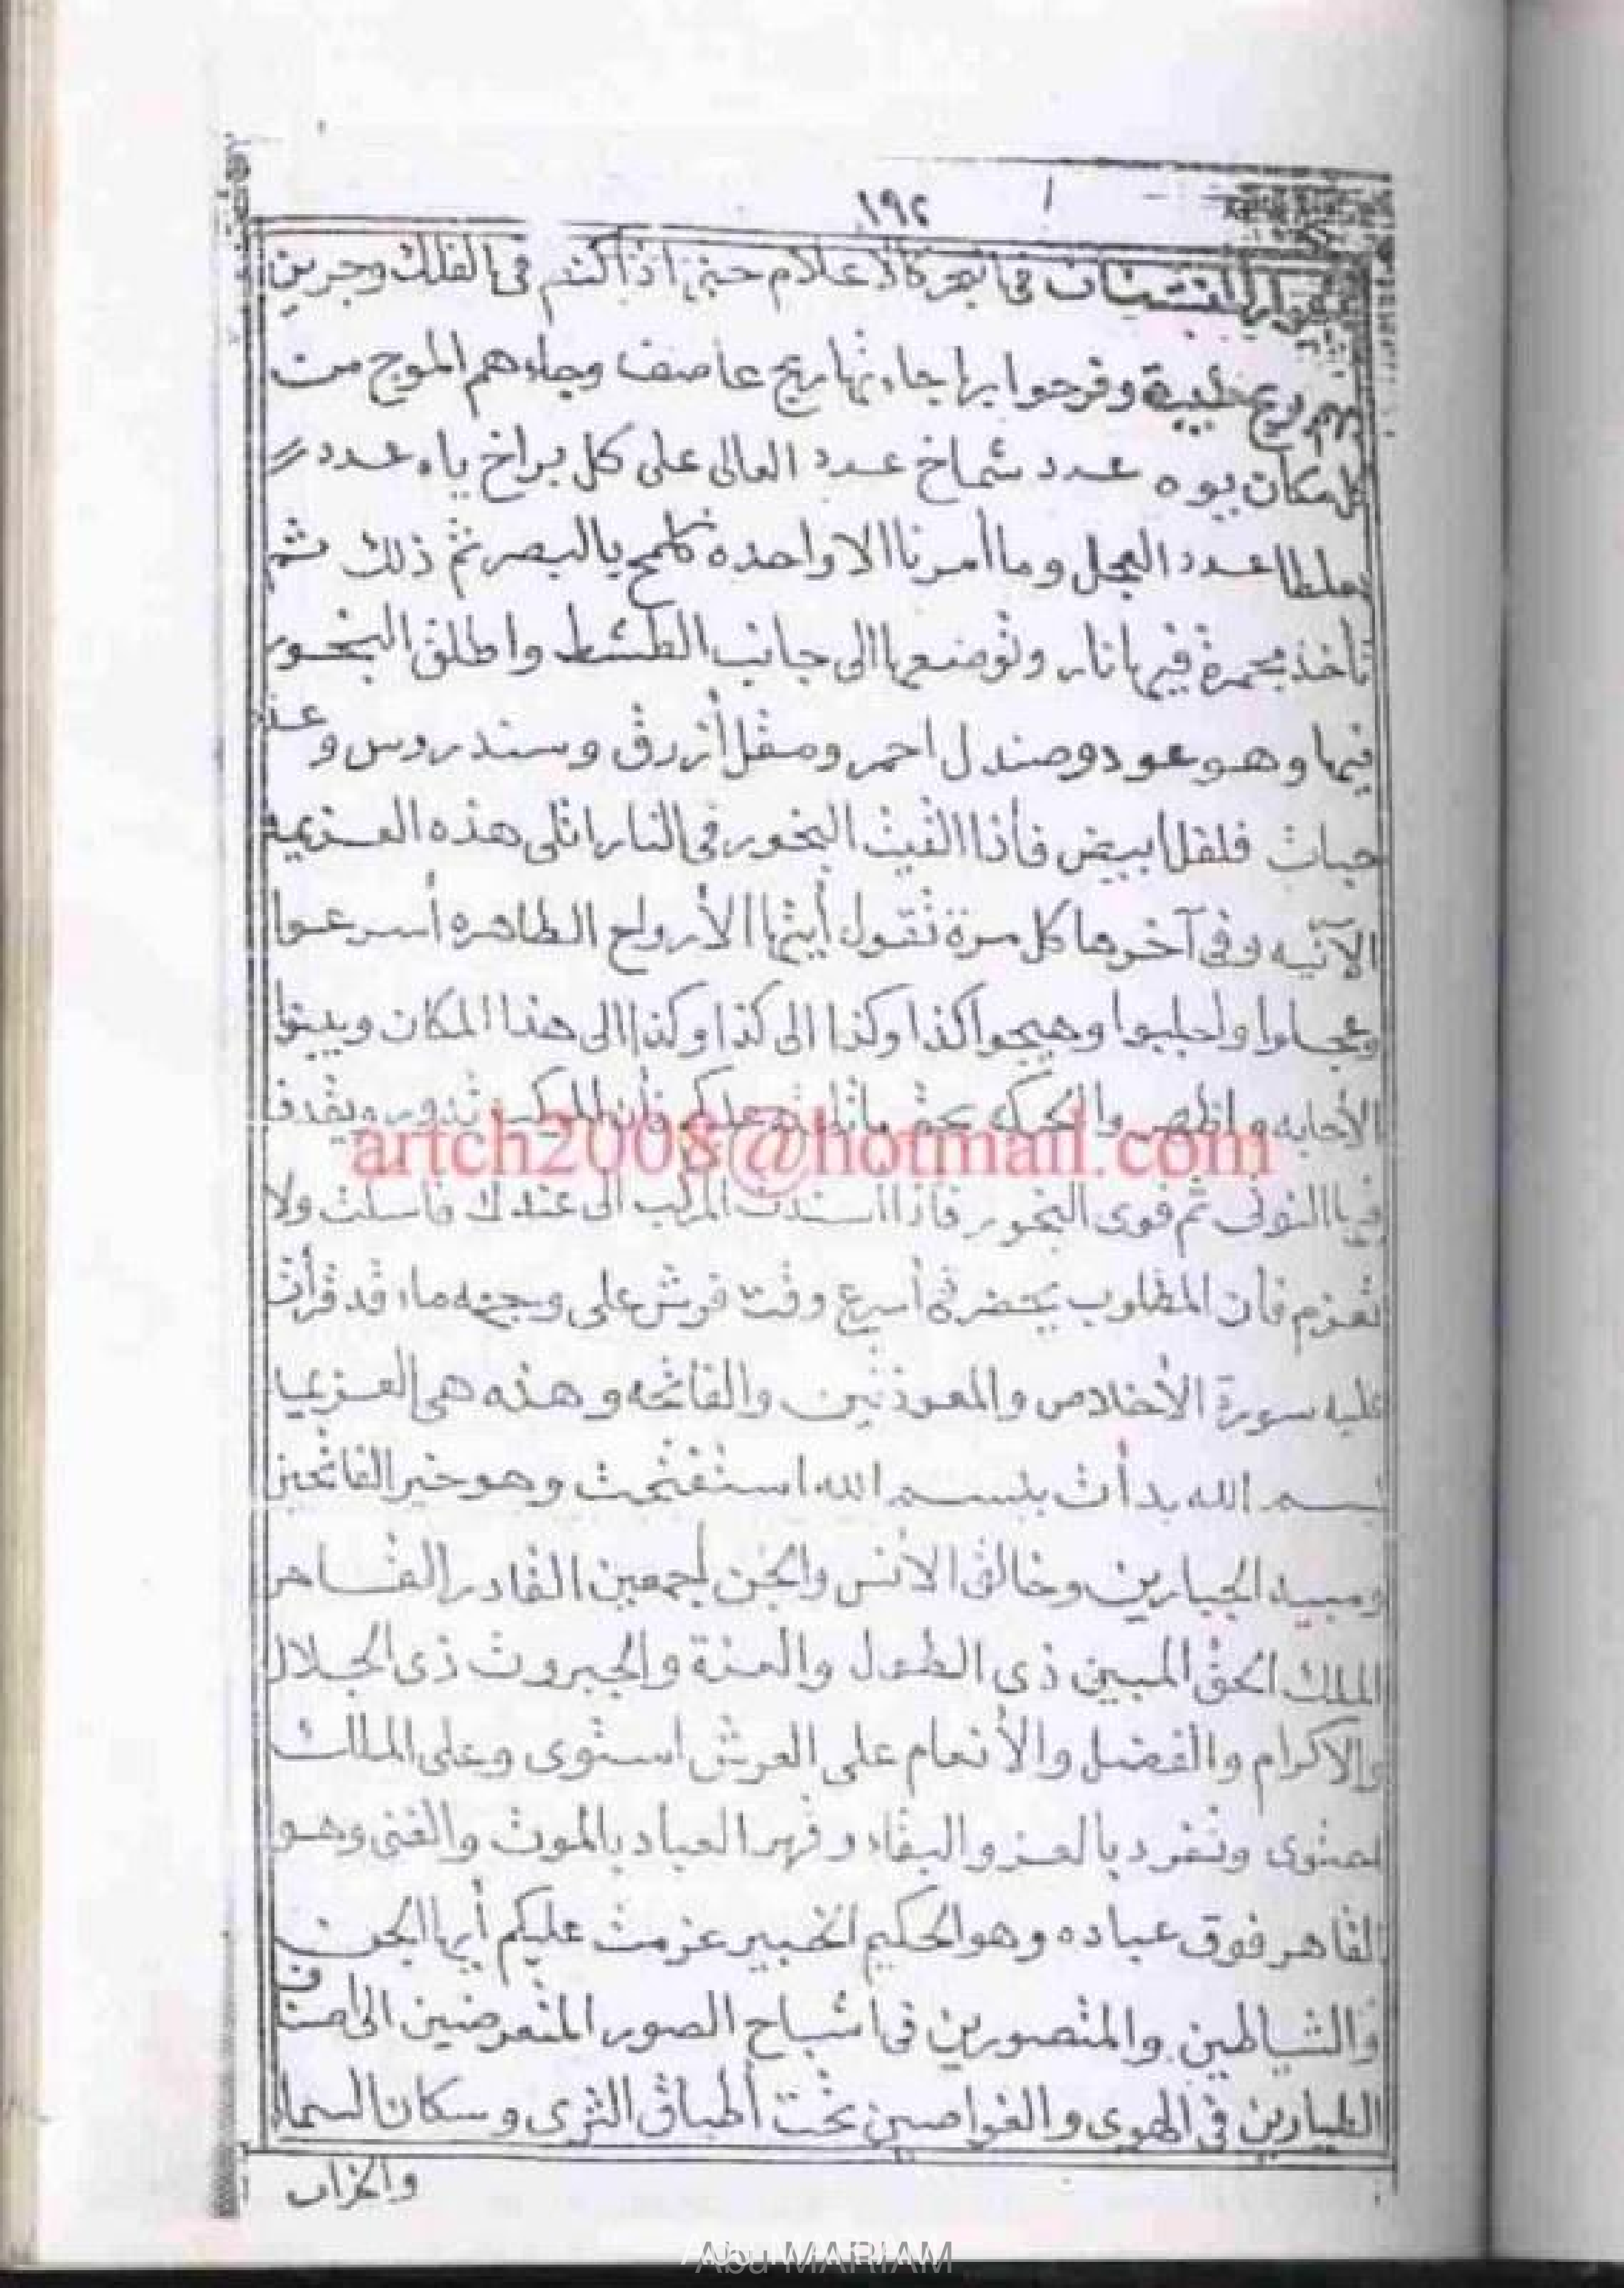 ١٩٢
الجوار المنشئات فى البحر كالاعلام حتى اذا كنتم فى الفلك وجرين
بهم بريح طيبة وفرحوا بها جاءتها ريح عاصف وجاءهم الموج من
كل مكان يوه عدد شماخ عدد العالى على كل براخ ياه عدد
عدد العجل وما أمرنا الا واحده كلمح بالبصر تم ذلك ثم
تأخذ مجمرة فيها نار وتوضعها الى جانب الطشط واطلق البخور
فيها وهو عود وصندل احمر ومقل أزرق وسندروس وعدة
حبات فلفل ابيض فأذا القيت البخور فى النار اتلى هذه العزيمه
الآتيه وفى آخرها كل مرة تقول أيتها الأرواح الطاهره أسرعوا
وعجلوا واجلبوا وهيجوا كذا وكذا الى كذا وكذا الى هذا المكان وبينوا
الأجابه واظهروا الحركه بحق ما تلوته عليكم فأن المركب تدور ويقذف
فيها النوتى ثم قوى البخور فأذا اسندت المركب الى عندك فاسكت ولا
تعزم فأن المطلوب يحضر فى أسرع وقت فرش على وجهه ماء قد قرأت
عليه سورة الأخلاص والمعوذتين والفاتحه وهذه هى العزيما
بسم الله بدأت بلسم الله استفتحت وهو خير الفاتحين
ومبيد الجبارين وخالق الانس والجن أجمعين القادر القاهر
الملك الحق المبين ذى الطول والعزة والجبروت ذى الجلال
والاكرام والفضل والأنعام على العرش استوى وعلى الملك
احتوى وتفرد بالعز والبقاء وقهر العباد بالموت والفنى وهو
القاهر فوق عباده وهو الحكيم الخبير عزمت عليكم أيها الجن
والشياطين والمتصورين فى أشباح الصور المتعرضين الى
الطيارين فى الهوى والغواصين تحت أطباق الثرى وسكان السماء
والخراب
artch2008@hotmail.com
Abu MARIAM